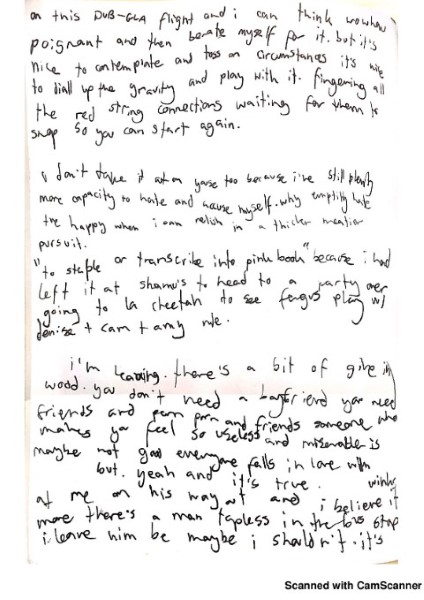 on this DUB-GLA flight and i can think wowhow
poignant and then berate myself for it. but it's
nice to contemplate and toss on circumstances it's nice
to diall up the gravity and play with it. fingering all
the red string connections waiting for them to
snap so you can start again.
i don't take it out on you too because i've still plenty
more capacity to hate and accuse myself. why emptily hate
the happy when i can relish in a thicker meatier
pursuit.
"to staple or transcribe into pink book" because i had
left it at shamu's to head to a party over
going to la cheetah to see fergus play w/
denise + cam + amy
i'm leaving. there's a bit of give in
wood. you don't need a boyfriend you need
friends and porn and friends someone who
makes you feel so useless and miserable is
maybe not good everyone falls in love with
but. yeah and it's true.
at me on his way out and i believe it
more there's a man topless in the bus stop
i leave him be maybe i shouldn't. it's
Scanned with CamScanner